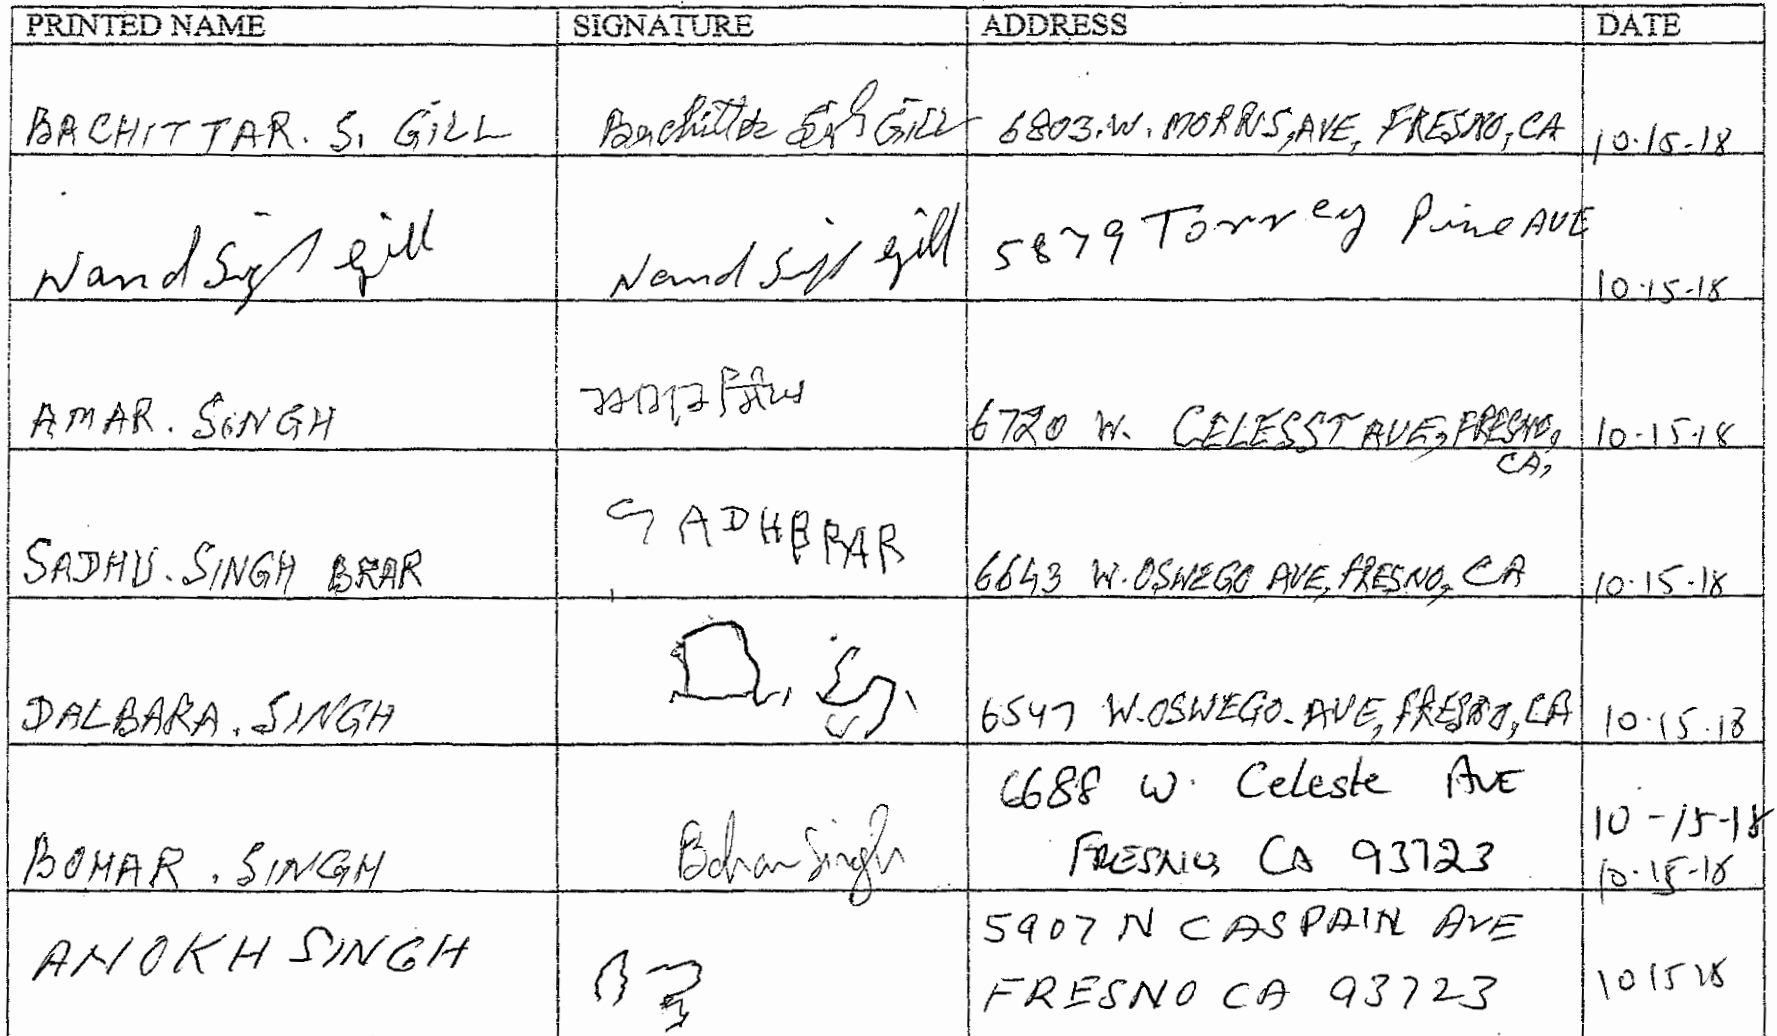 PRINTED NAME SIGNATURE ADDRESS DATE
BACHITTAR. S. GILL Bachittar Singh GILL 6803.W. MORRIS,AVE, FRESNO,CA 10.15.18
Nand Singh gill Nand Singh gill 5879 Torrey Pine AVE 10.15.18
AMAR. SINGH ਅਮਰ ਸਿੰਘ 6720 W. CELESST AVE, FRESNO, 10-15-18
CA,
SADHU. SINGH BRAR SADHBRAR 6643 W.OSWEGO AVE, FRESNO, CA 10.15-18
DALBARA. SINGH D. 6547 W.OSWEGO. AVE, FRESNO, CA 10.15.18
6688 W. Celeste AVE 10-15-18
BOHAR. SINGH Bohar Singh FRESNO, CA 93723 10.15-18
ANOKH SINGH 5907 N CASPAIN AVE
FRESNO CA 93723 10 15 18